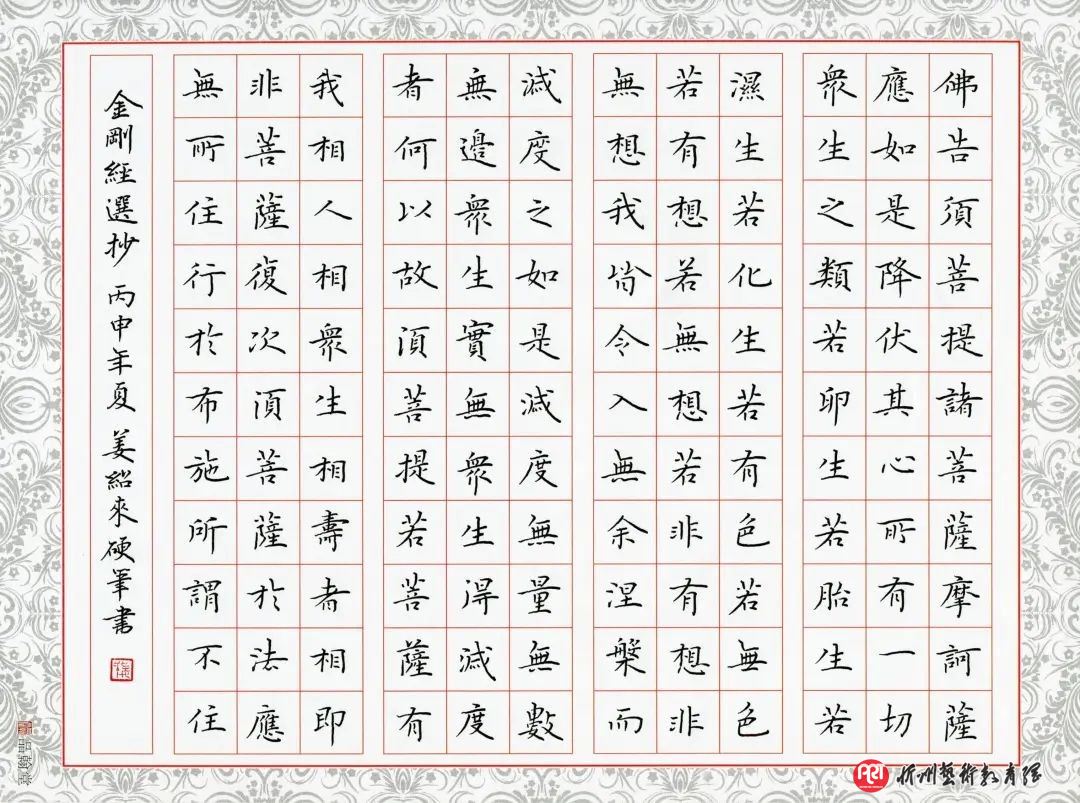 佛告須菩提諸菩薩摩訶薩
應如是降伏其心所有一切
衆生之類若卵生若胎生若
濕生若化生若有色若無色
若有想若無想若非有想非
無想我皆令入無余涅槃而
滅度之如是滅度無量無數
無邊衆生實無衆生得滅度
者何以故須菩提若菩薩有
我相人相衆生相壽者相即
非菩薩復次須菩薩於法應
無所住行於布施所謂不住
金剛經選抄 丙申年夏 姜紹來硬筆書
品翰堂
忻州藝術教育網